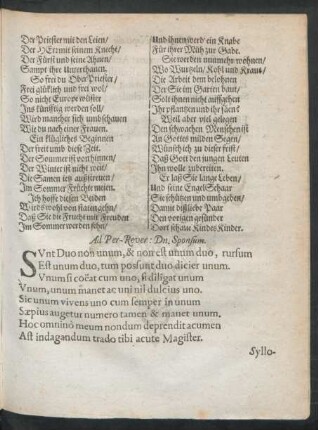 Der Priester mit den Leien/
Der HErr mit seinem Knecht/
Der Fürst und seine Ahnen/
Sampt ihre Unterthanen.
So frei du Ober Priester/
Frei glücklich und frei wol/
So nicht Europe wüster
Ins künfftig werden soll/
Wird mancher sich umbschauen
Wie du nach einer Frauen.
Ein klügliches Beginnen
Der freit umb diese Zeit.
Der Sommer ist von hinnen/
Der Winter ist nicht weit/
Die Samen ietz außstreuen/
Im Sommer Früchte meien.
Ich hoffe diesen Beiden
Wirds wohl von statten gehn/
Daß Sie die Frucht mit Freuden
Im Sommer werden sehn/
Und ihnen werd' ein Knabe
Für ihrer Müh zur Gabe.
Sie werden nunmehr wohnen/
Wo Wurtzeln/ Kohl und Kraut/
Die Arbeit dem belohnen
Der Sie im Garten baut/
Solt ihnen nicht auffgehen
Ihr pflantzen und ihr säen?
Weil aber viel gelegen
Den schwachen Menschen ist
An Gottes milden Segen/
Wünsch ich zu dieser frist/
Daß Gott den jungen Leuten
Ihn wolle zubereiten.
Er laß Sie lange Leben/
Und seine Engel Schaar
Sie schützen und umbgeben/
Damit diß liebe Paar
Den vorigen gesünder
Dort schaue Kindes Kinder.
Ad Per-Rever: Dn. Sponsum.
SVnt Duo non unum, & non est unum duo, rursum
Est unum duo, tum possunt duo dicier unum.
Vnum si cœat cum uno, si diligat unum
Vnum, unum manet ac uni nil dulcius uno.
Sic unum vivens uno cum semper in unum
Sæpius augetur numero tamen & manet unum.
Hoc omninò meum nondum deprendit acumen
Ast indagandum trado tibi acute Magister.
Syllo-